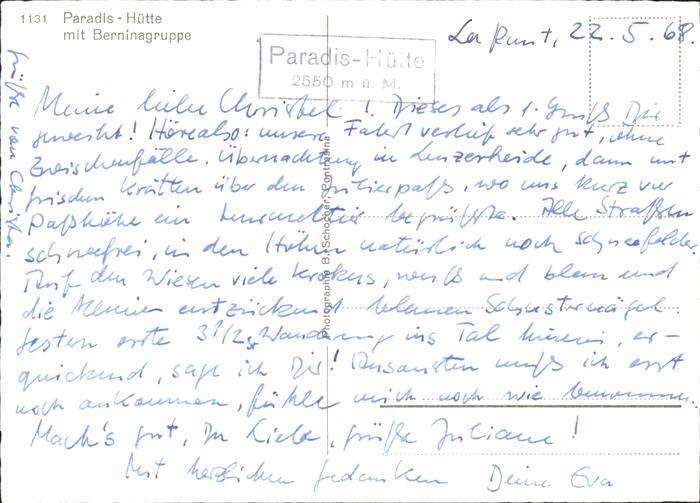 1131 Paradis - Hütte
mit Berninagruppe
Paradis-Hütte
2550 m ü. M.
La Punt, 22. 5. 68
Meine liebe Christel! Dieses als 1. Gruß Dir
geweiht! Höre also: unsere Fahrt verlief sehr gut, ohne
Zwischenfälle. Übernachtung in Lenzerheide, dann mit
frischen Kräften über den Julierpaß, wo uns kurz vor
Paßhöhe ein Murmeltier begrüßte. Alle Straßen
schneefrei, in den Höhen natürlich noch Schneefelder.
Auf den Wiesen viele Krokus, weiß und blau und
die kleinen entzückend blauen Schusternägel.
Gestern erste 3 1/2 Wanderung ins Tal hinein, er-
quickend, sage ich Dir! Ansonsten muß ich erst
noch ankommen, fühle mich noch wie benommen.
Mach's gut, Du Liebe, grüße Juliane!
Mit herzlichem Gedenken Deine Eva
Grüße von Christa.
Photographie B. Schocher, Pontresina